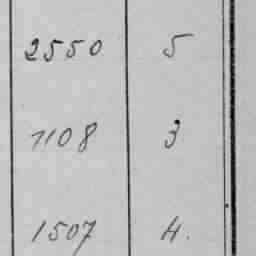 2550 5
1108 3
1507 4.